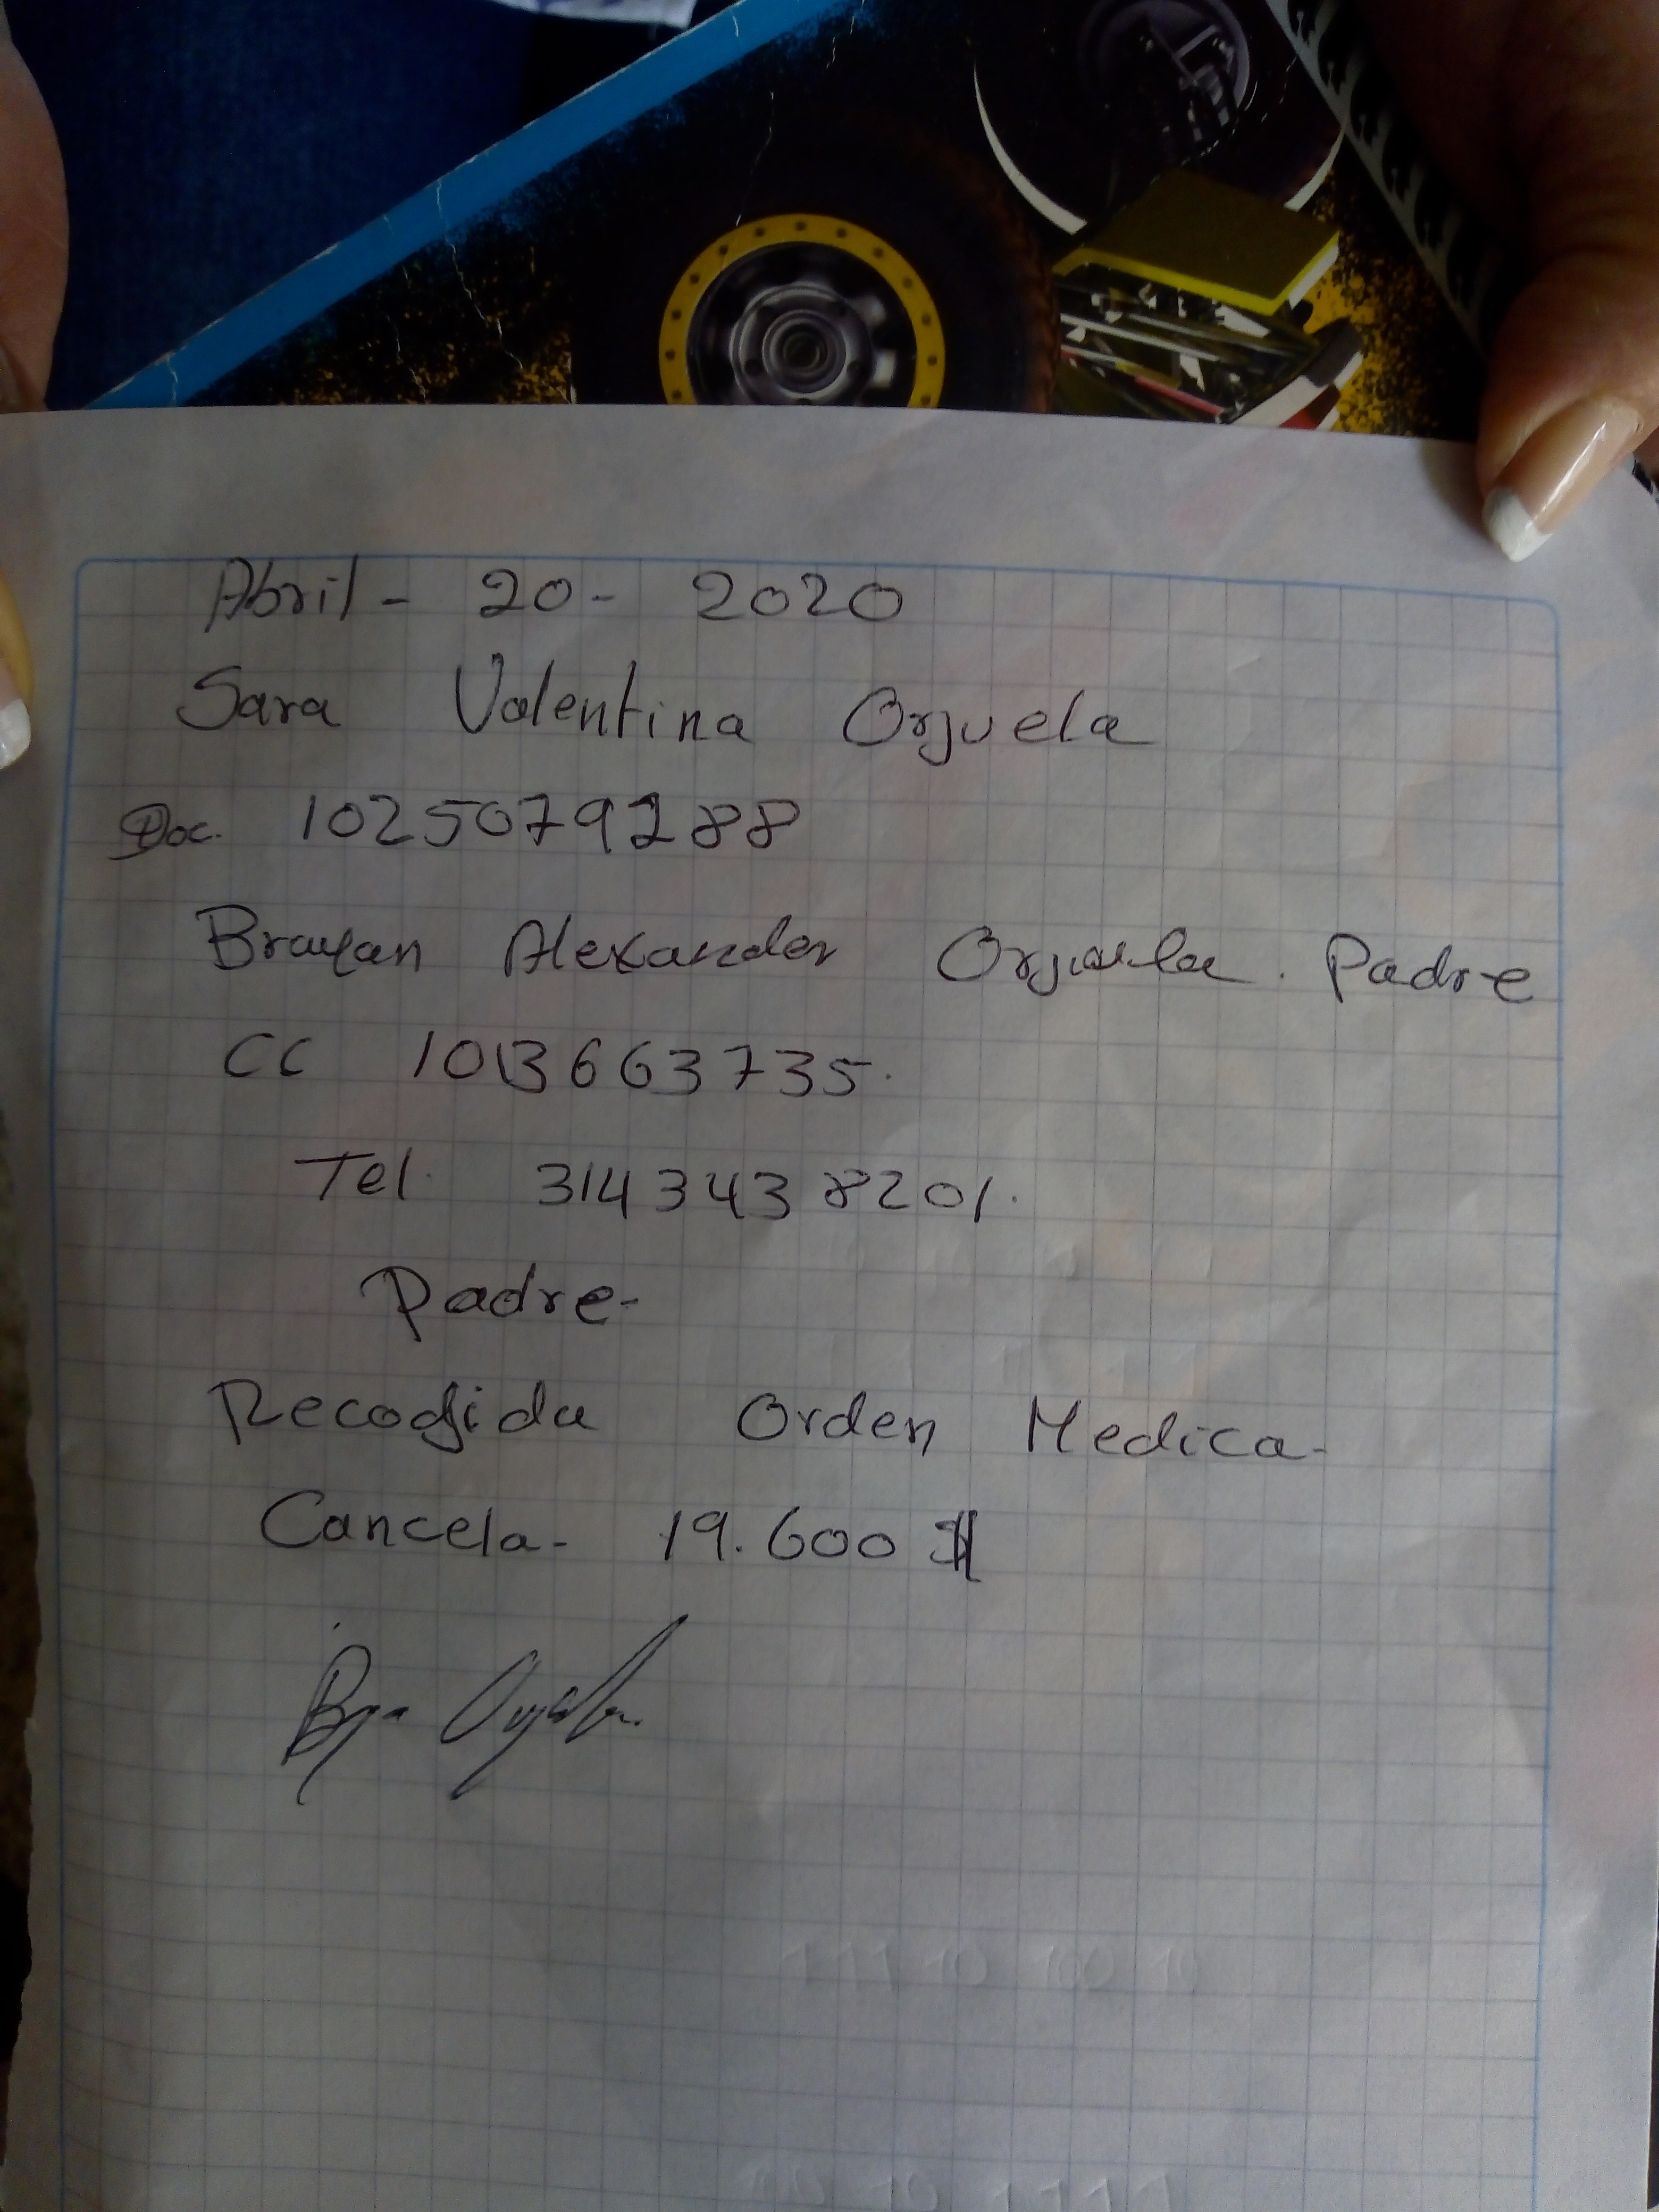 Abril - 20 - 2020
Sara Valentina Orjuela
Doc. 1025079288
Brayan Alexander Orjuela. Padre
CC 1013663735.
Tel. 3143438201.
Padre-
Recogida Orden Medica-
Cancela- 19.600 $